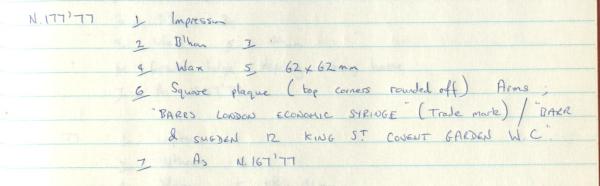 N.177'77 1 Impression
2 B'ham 3
4 Wax 5 62 x 62 mm
6 Square plaque (top corners rounded off) Arms;
"BARRS LONDON ECONOMIC SYRINGE" (Trade mark) / "BARR
& SUGDEN 12 KING ST COVENT GARDEN W.C".
7 As N.167'77